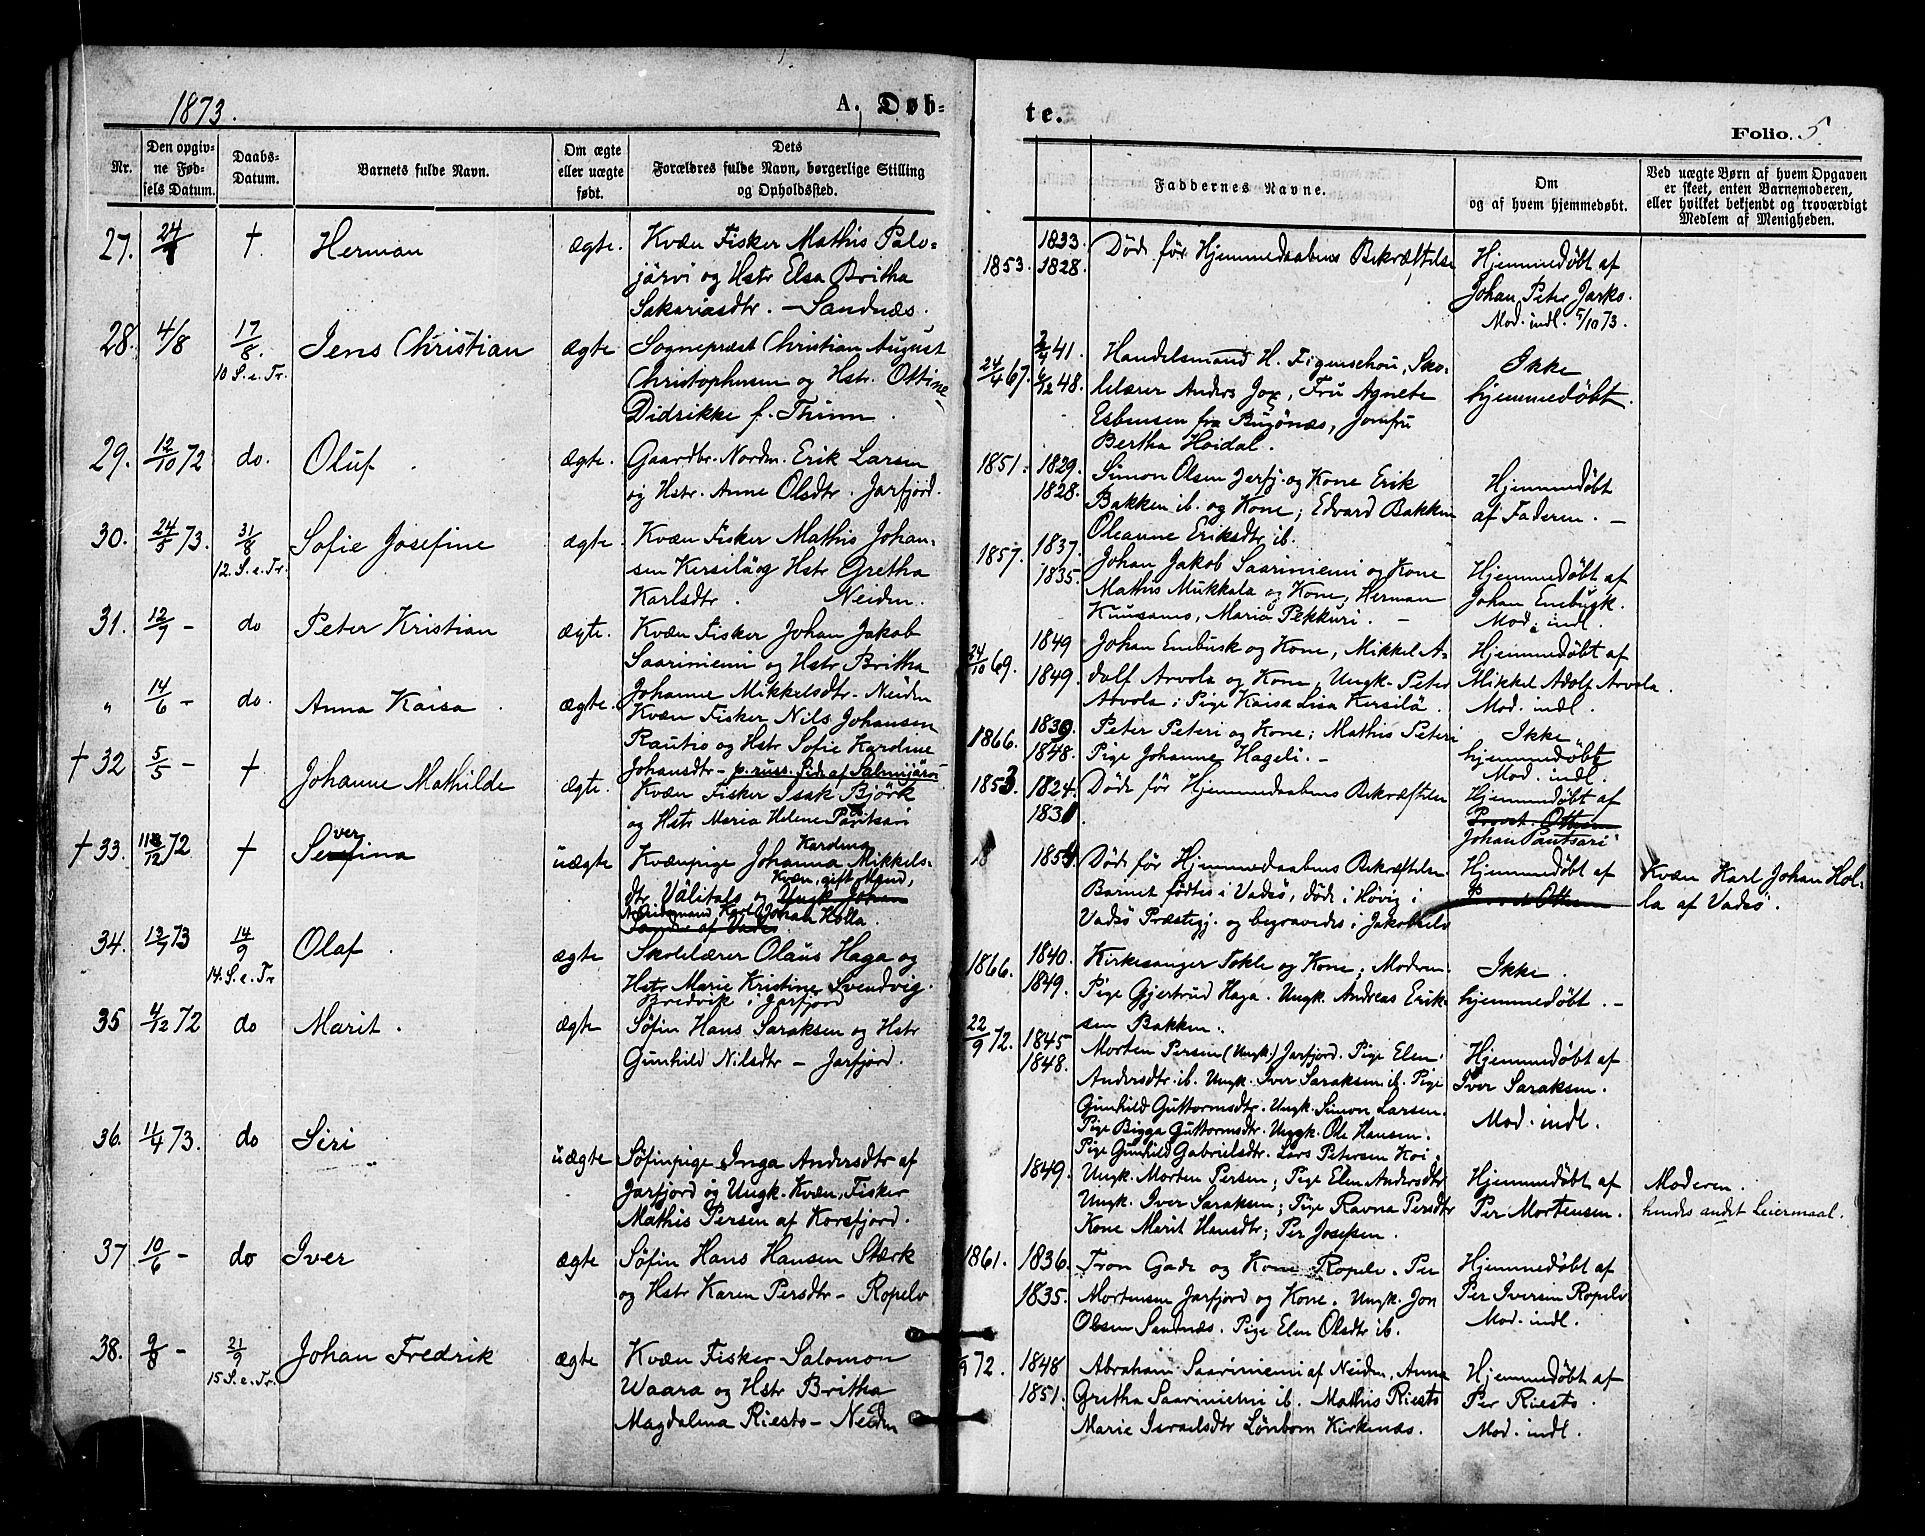 1873.
A. Døb-
te.
Folio. 5
Nr.
Den opgiv-
ne Fød-
sels Datum.
Daabs-
Datum.
Barnets fulde Navn.
Om ægte
eller uægte
født.
Dets
Forældres fulde Navn, borgerlige Stilling
og Opholdssted.
Faddernes Navne.
Om
og af hvem hjemmedøbt.
Ved uægte Børn af hvem Opgaven
er skeet, enten Barnemoderen,
eller hvilket bekjendt og troværdigt
Medlem af Menigheden.
27.
†
Herman
ægte.
Kvæn Fisker Mathis Palo-
järvi og Hstr Elsa Britha
Sakariasdtr. – Sandnæs.
1853.
1833.
1828.
Døde før Hjemmedaabens Bekræftelse
Hjemmedøbt af
Johan Peter Jarko.
Mod. indl. 5/10 73.
28.
4/8
17/8.
10 S. e. Tr.
Jens Christian
ægte
Sognepræst Christian August
Christophersen og Hstr. Ottine
Didrikke f. Thinn.
24/4 67.
41.
48.
Handelsmand H. Figenschou, Sko-
lelærer Anders Jox, Fru Agnete
Esbensen fra Bugönæs, Jomfru
Bertha Hoidal.
Ikke
hjemmedøbt.
29.
12/10 72
do.
Oluf
ægte.
Gaardbr. Nordm. Erik Larsen
og Hstr. Anne Olsdtr. Jarfjord.
1851.
1829.
1828.
Simon Olsen Jarfj. og Kone Erik
Bakken ib. og Kone; Edvard Bakken
Oleanne Eriksdtr ib.
Hjemmedøbt
af Faderen. –
30.
24/5 73.
31/8
12. S. e. Tr.
Sofie Josefine
ægte.
Kvæn Fisker Mathis Johan-
sen Kersilä og Hstr Gretha
Karlsdtr. Neiden.
1857.
1837.
1835.
Johan Jakob Saariniemi og Kone
Mathis Mukkala og Kone, Herman
Kuusamo, Maria Pekkuri. –
Hjemmedøbt af
Johan Enebusk.
Mod. indl.
31.
12/9 –
do
Peter Kristian
ægte.
Kvæn Fisker Johan Jakob
Saariniemi og Hstr Britha
Johanne Mikkelsdtr. Neiden
24/10 69.
1849
1849.
Johan Enebusk og Kone, Mikkel A-
dolf Arvola og Kone, Ungk. Peter
Arvola; Pige Kaisa Lisa Kersilä.
Hjemmedøbt af
Mikkel Adolf Arvola.
Mod. indl.
"
14/6 –
do.
Anna Kaisa.
ægte.
Kvæn Fisker Nils Johansen
Rautio og Hstr Sofie Karoline
Johansdtr – p. russ. Side af Salmijärvi
1866.
1839
1848.
Peter Peteri og Kone; Mathis Peteri
Pige Johanne Hageli. –
Ikke
hjemmedøbt
Mod. indl.
† 32
5/5 –
†
Johanne Mathilde
ægte.
Kvæn Fisker Isak Björk
og Hstr Maria Helene Pautsari
1853.
1824.
1831
Døde før Hjemmedaabens Bekræftelse
Hjemmedøbt af
Provst. Ottesen
Johan Pautsari
† 33.
72
†
Severina
uægte
Kvænpige Johanna Karolina Mikkels-
dtr Välitalo og Ungk. Johan
Kvæn, gift Mand,
Arbeidsmand Karl Johan Holla.
af Vadsö.
18
1854.
Døde før Hjemmedaabens Bekræftelse.
Barnet fødtes i Vadsö, døde i Høvig i
Vadsö Præstegj. og begravedes i Jakobselv
Hjemmedøbt af
Provst Ottesen
Kvæn Karl Johan Hol-
la af Vadsö.
34.
13/9 73
14/9
14. S. e. Tr
Olaf.
ægte
Skolelærer Olaus Haga og
Hstr Marie Kristine Svendvig.
Bredvik i Jarfjord
1866.
1840.
1849.
Kirkesanger Tokle og Kone; Modern.
Pige Gjertrud Haga. Ungk. Andreas Erik-
sen Bakken.
Ikke
hjemmedøbt. –
35
4/12 72
do
Marit.
ægte
Søfin Hans Saraksen og Hstr
Gunhild Nilsdtr – Jarfjord.
22/9 72.
1845
1848.
Morten Persen (Ungk.) Jarfjord. Pige Elen
Andersdtr ib. Ungk. Iver Saraksen ib. Pige
Gunhild Guttormsdtr. Ungk. Simon Larsen.
Pige Bigga Guttormsdtr. Ungk. Ole Hansen.
Pige Gunhild Gabrielsdtr. Lars Petersen Koi.
Hjemmedøbt af
Iver Saraksen.
Mod. indl.
36.
11/4 73.
do
Siri
uægte
Søfinpige Inga Andersdtr af
Jarfjord og Ungk. Kvæn, Fisker
Mathis Persen af Korsfjord.
1849.
Ungk. Morten Persen; Pige Elen Andersdtr
Ungk. Iver Saraksen; Pige Ravna Persdtr
Kone Marit Hansdtr; Per Josefsen.
Hjemmedøbt af
Per Mortensen.
Moderen.
hendes andet Leiermaal.
37
10/6 –
do
Iver
ægte
Søfin Hans Hansen Stærk
og Hstr Karen Persdtr – Ropelv
1861.
1836.
1835.
Tron Gade og Kone Ropelv. Per
Mortensen Jarfjord og Kone. Ungk. Jon
Olsen Sandnæs. Pige Elen Olsdtr ib.
Hjemmedøbt af
Per Iversen Ropelv
Mod. indl.
38.
9/8 –
21/9
15 S. e. Tr.
Johan Fredrik
ægte
Kvæn Fisker Salomon
Waara og Hstr Britha
Magdalena Riesto – Neiden
72.
1848
1851.
Abraham Saariniemi af Neiden, Anna
Gretha Saariniemi ib. Mathis Riesto
Marie Israelsdtr Lönbom Kirkenæs.
Hjemmedøbt af
Per Riesto.
Mod. indl.